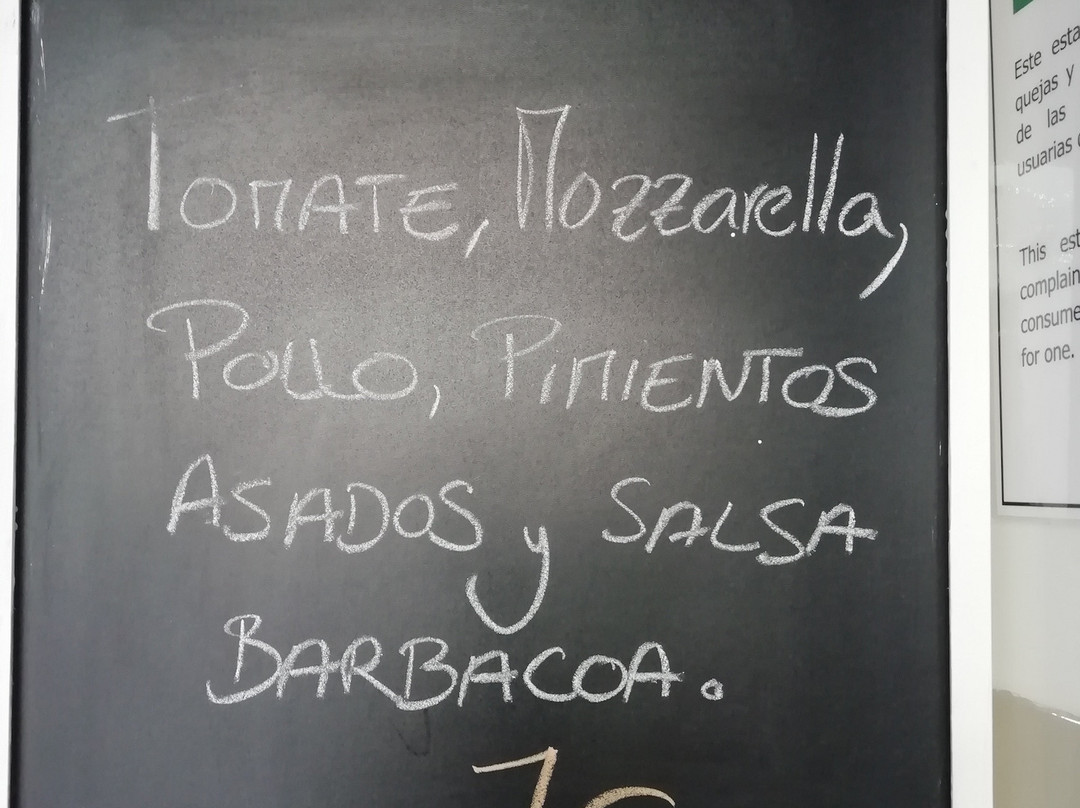 Tomate, Mozzarella,
Pollo, Pimientos
Asados y Salsa
Barbacoa.
Este
quejas y
de las
usuarias
This
complain
consume
for one.